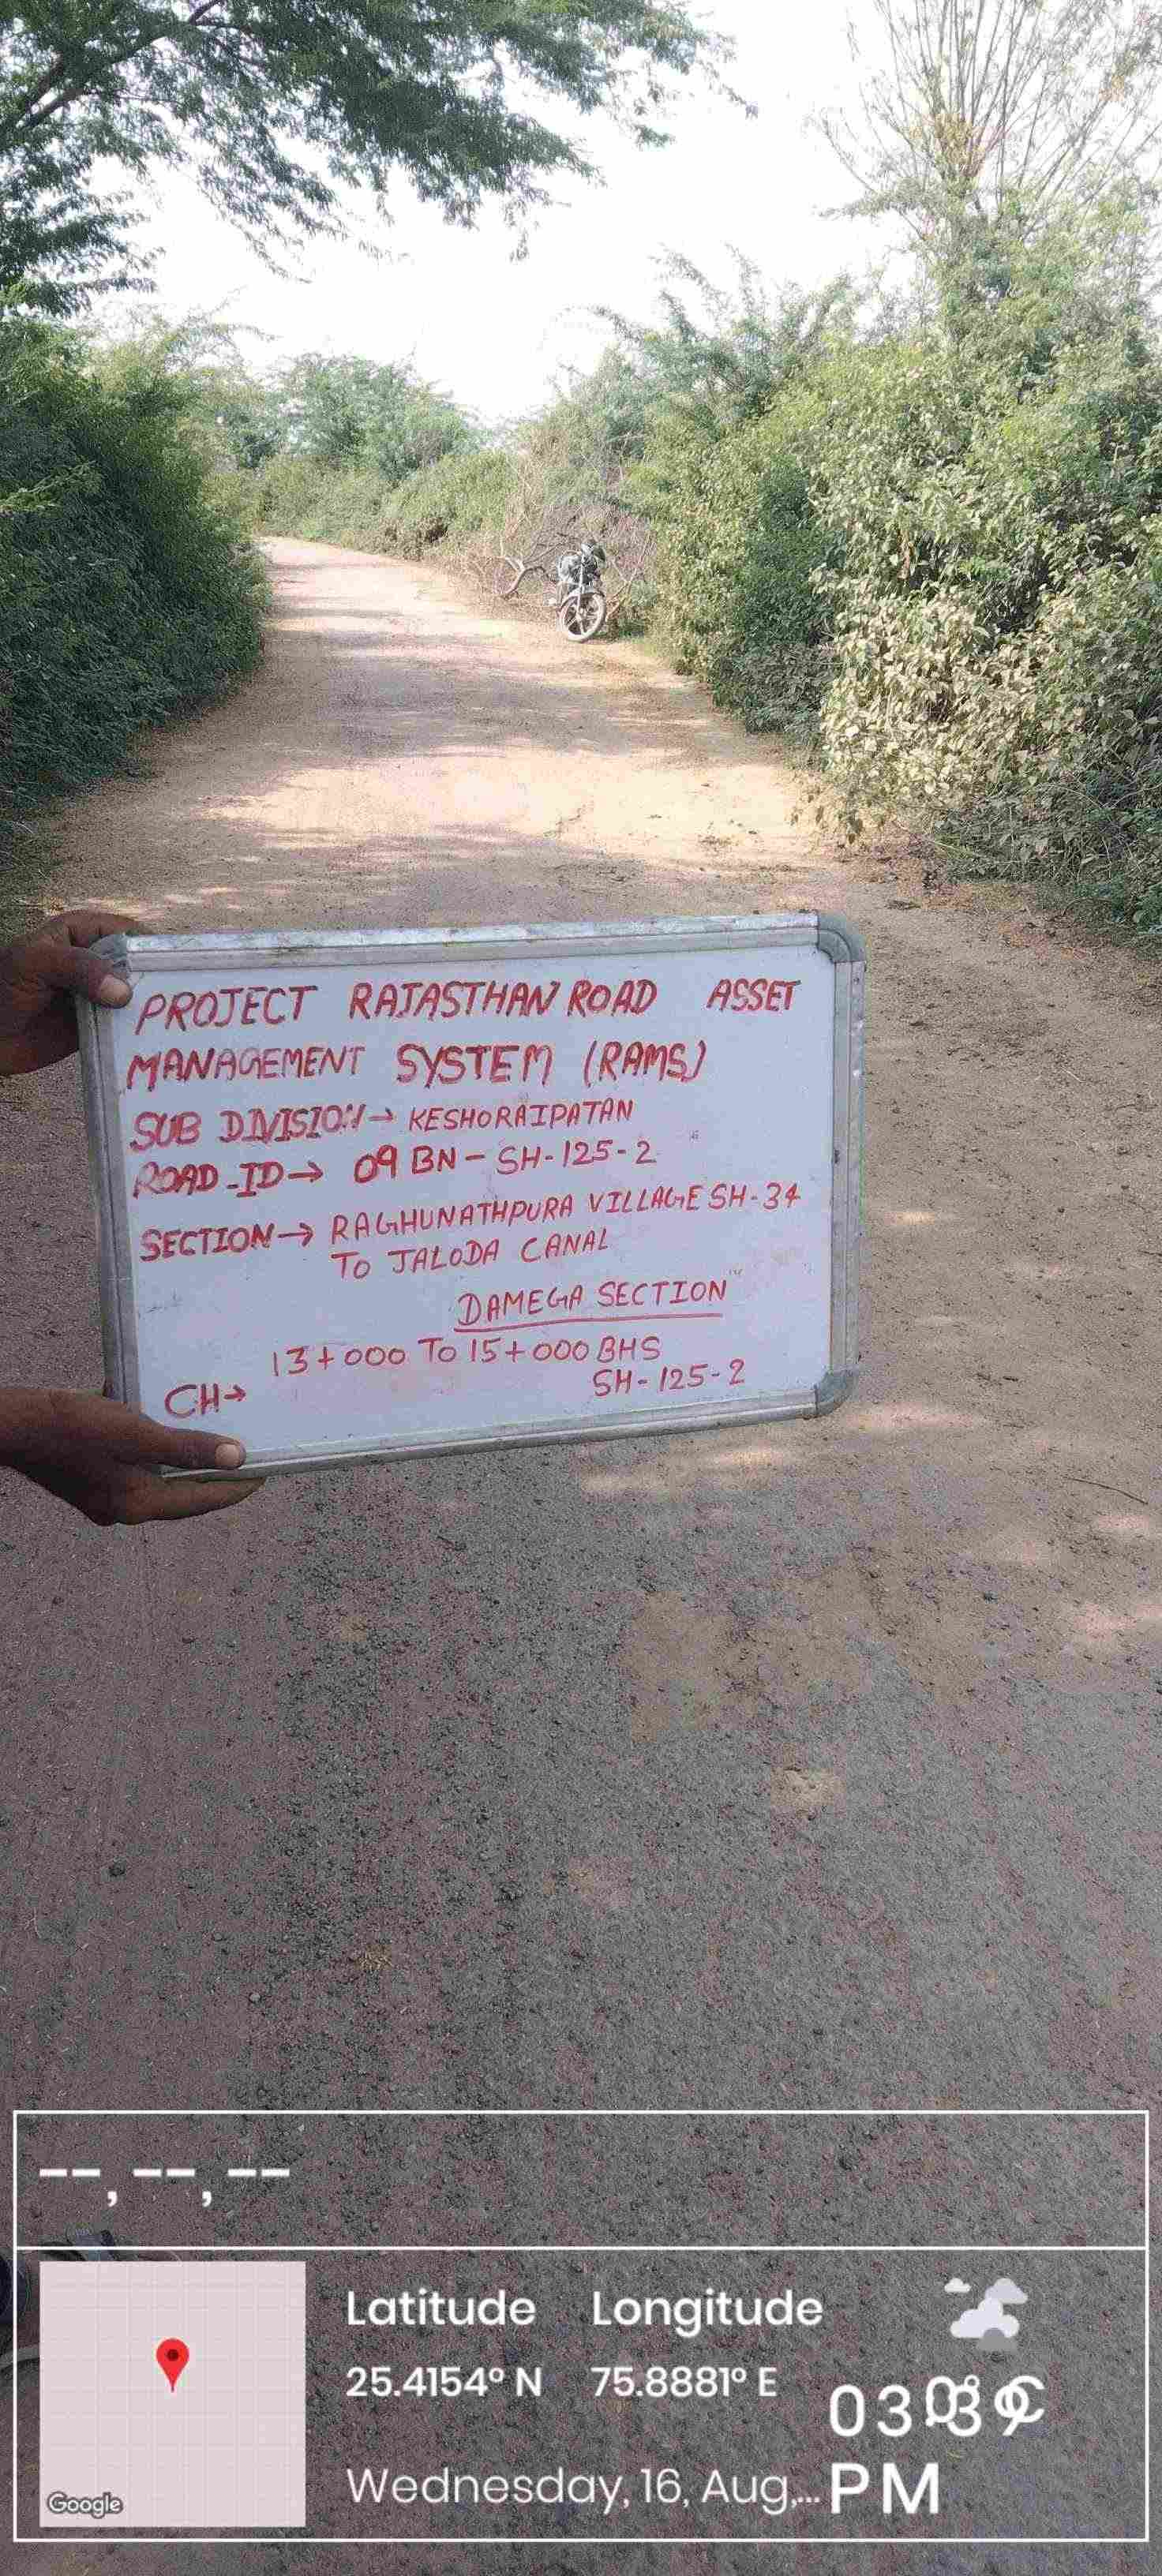 PROJECT RAJASTHAN ROAD ASSET
MANAGEMENT SYSTEM (RAMS)
SUB DIVISION→ KESHORAIPATAN
ROAD-ID→ 09 BN-SH-125-2
SECTION→ RAGHUNATHPURA VILLAGE SH-34
TO JALODA CANAL
DAMEGA SECTION
13+000 TO 15+000 BHS
CH→
SH-125-2
--,--,--
Latitude Longitude
25.4154° N 75.8881° E
Wednesday, 16, Aug,...
PM
Google